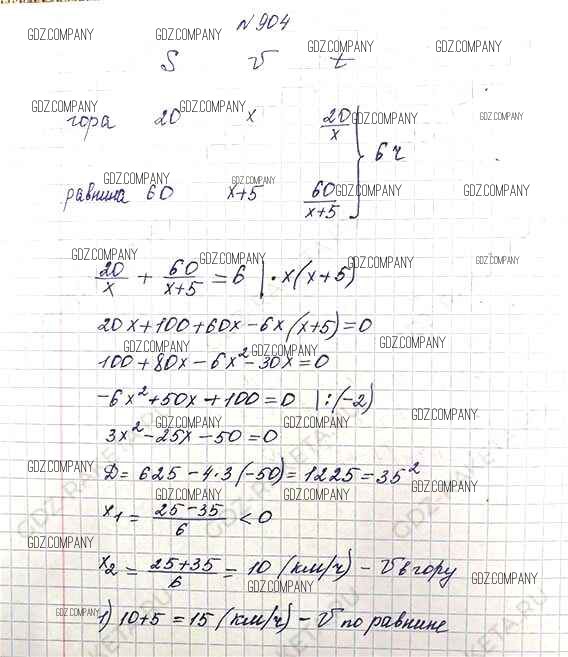 №904
GDZ.COMPANY GDZ.COMPANY GDZ.COMPANY GDZ.COMPANY
S V t
GDZ.COMPANY GDZ.COMPANY GDZ.COMPANY GDZ.COMPANY
гора 20 x 20/x
} 6 ч
GDZ.COMPANY GDZ.COMPANY GDZ.COMPANY GDZ.COMPANY
равнина 60 x+5 60/(x+5)
GDZ.COMPANY GDZ.COMPANY GDZ.COMPANY GDZ.COMPANY
20/x + 60/(x+5) = 6 | · x(x+5)
20x+100+60x-6x(x+5)=0
GDZ.COMPANY GDZ.COMPANY GDZ.COMPANY
100+80x-6x²-30x=0
-6x²+50x+100=0 |:(-2)
GDZ.COMPANY GDZ.COMPANY GDZ.COMPANY
3x²-25x-50=0
GDZ.COMPANY
D= 625-4·3(-50)=1225=35²
GDZ.COMPANY GDZ.COMPANY
x₁= (25-35)/6 <0
GDZ.COMPANY
x₂= (25+35)/6 = 10 (км/ч) - V в гору
GDZ.COMPANY GDZ.COMPANY
GDZ.COMPANY
1) 10+5=15 (км/ч) - V по равнине